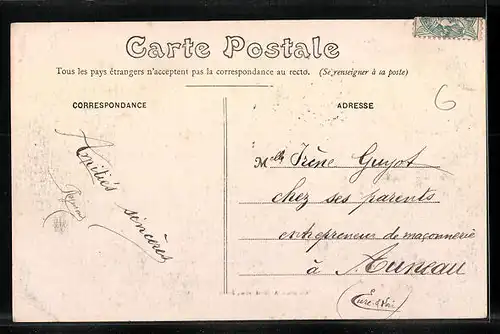 Carte Postale
Tous les pays étrangers n'acceptent pas la correspondance au recto. (Se renseigner à sa poste)
CORRESPONDANCE
Amitiés
sincères
ADRESSE
6
Melle Irène Guyot
chez ses parents
entrepreneur de maçonnerie
à Auneau
(Eure & Loir)